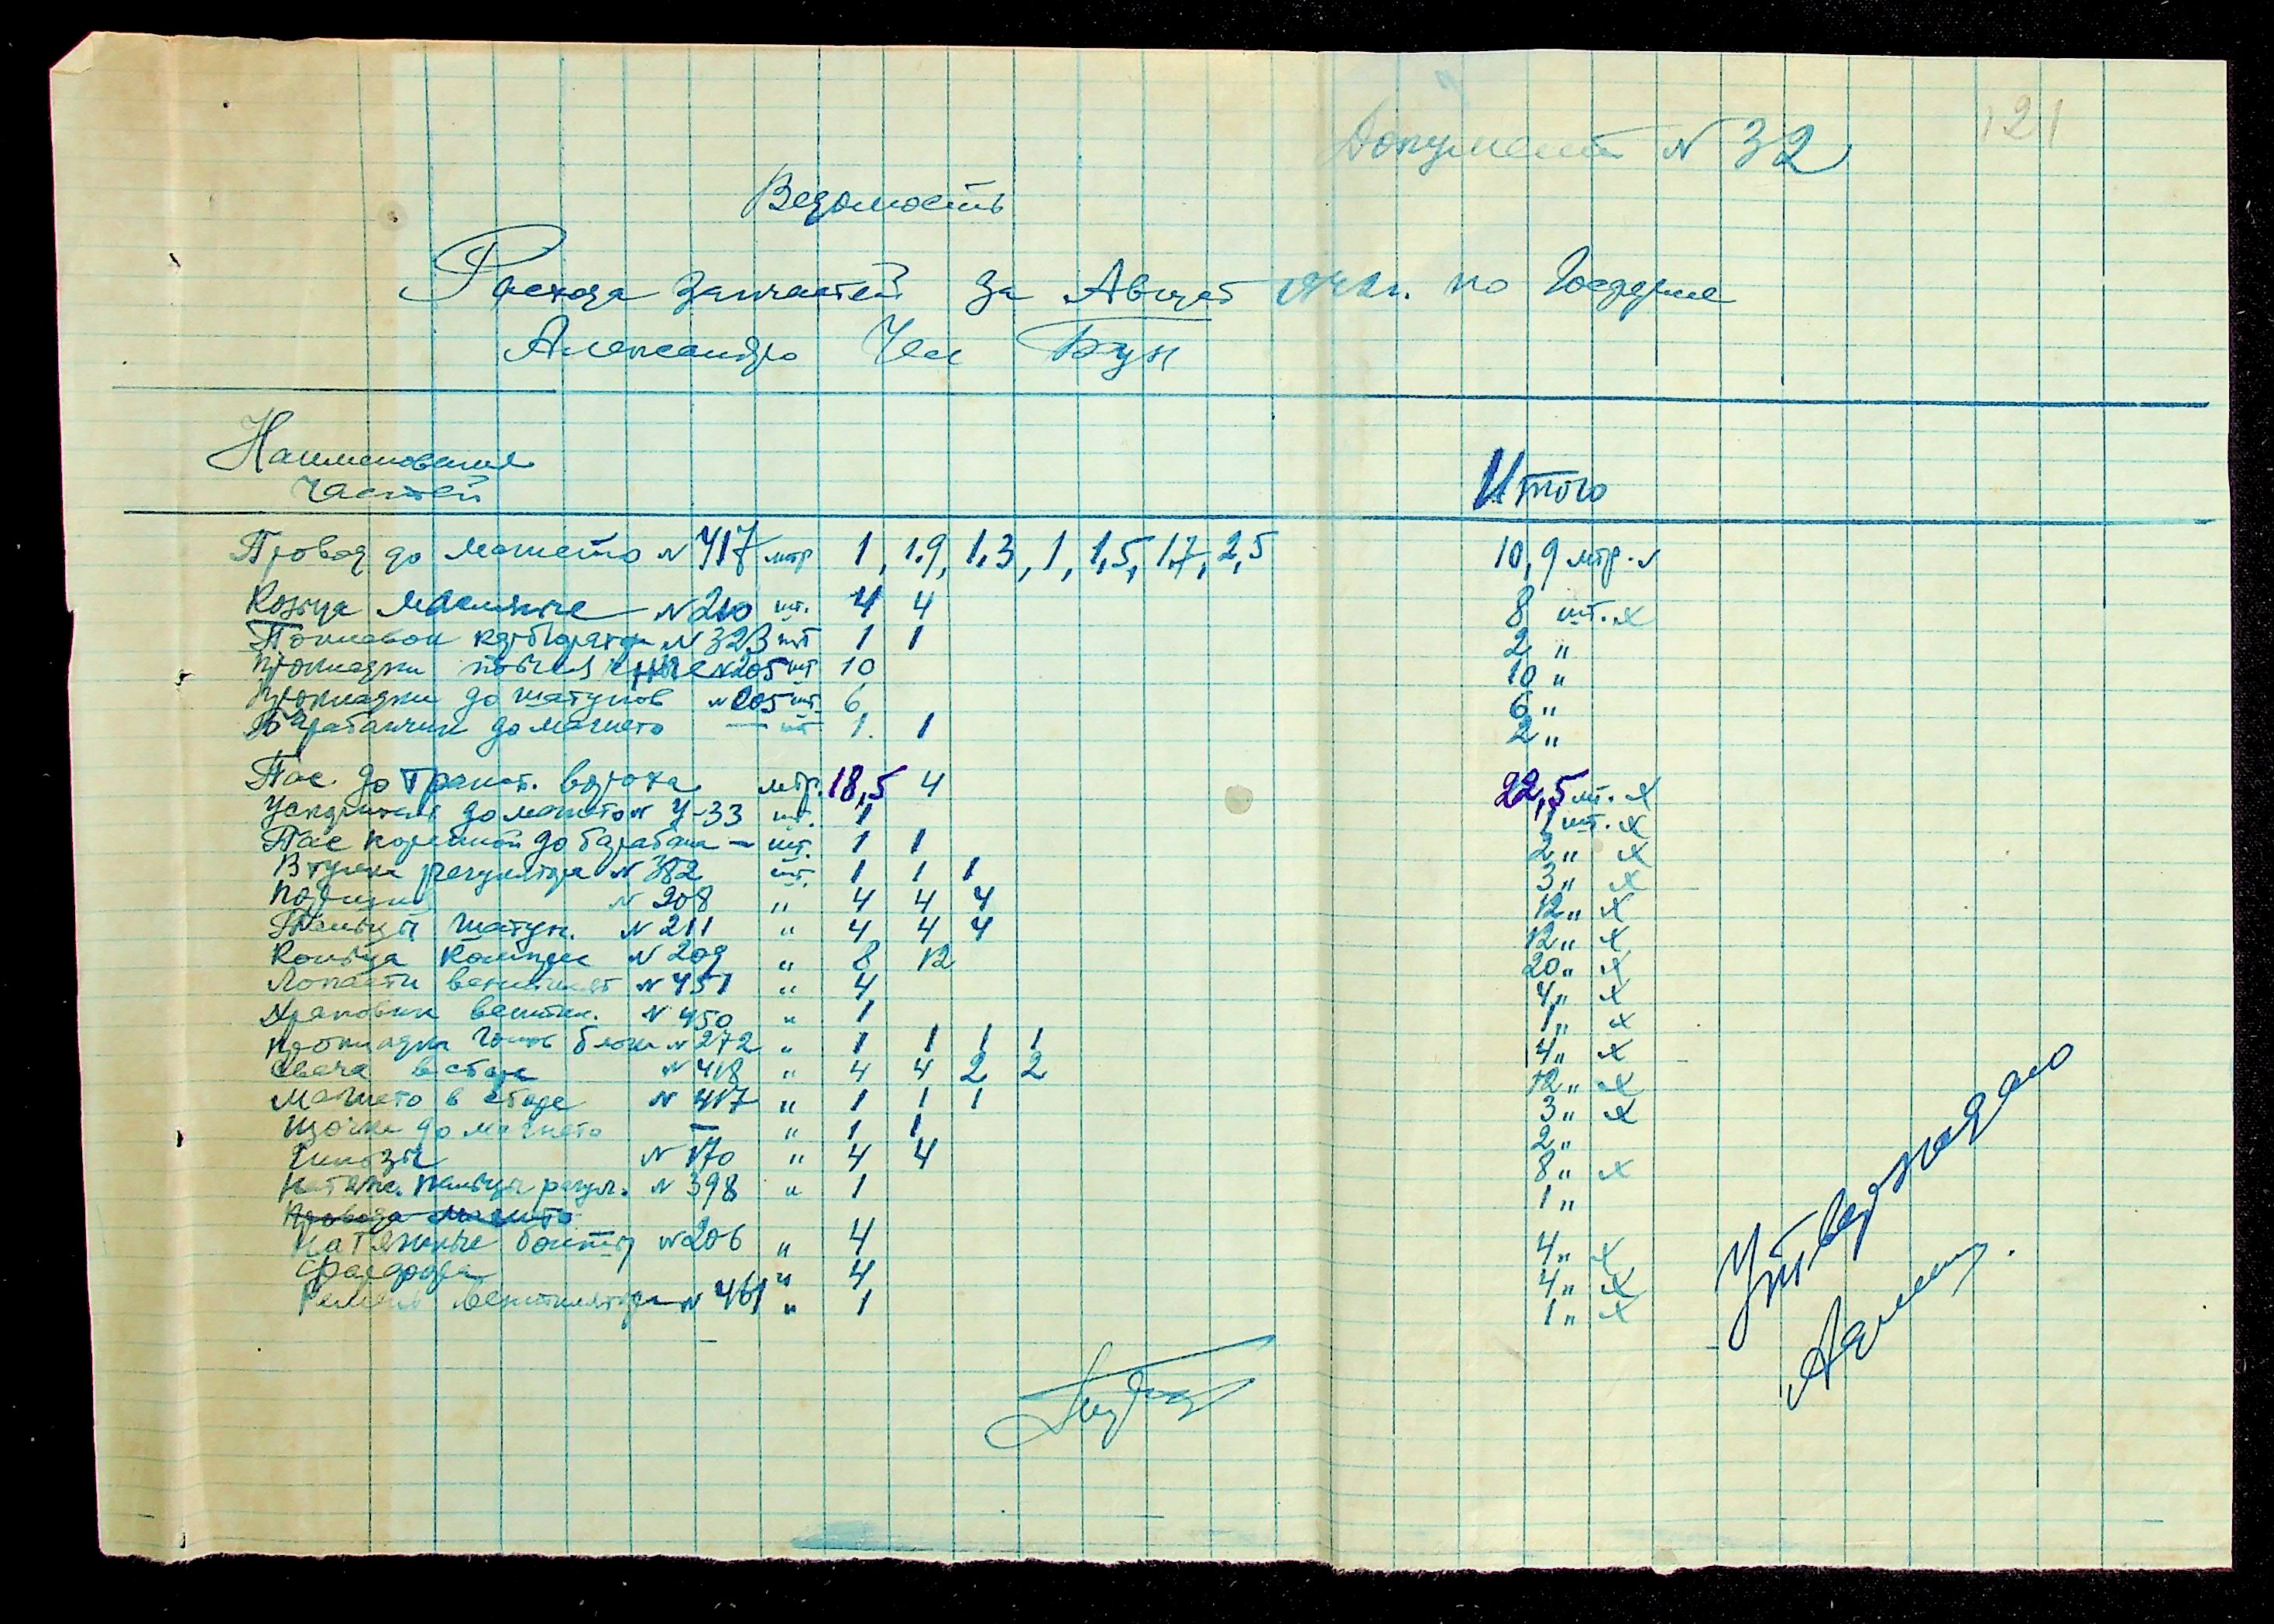 121
Документ N 32
Ведомость
Расхода запчастей за Август 194 г. по
Александро
Наименования
частей
Итого
Провод до магнето N 417 мтр 1, 1.9, 1,3, 1, 1,5, 1,7, 2,5 10,9 мтр. v
Кольца масляные N 210 шт. 4 4 8 шт. х
Поплавок карбюратор N 323 шт 1 1 2 "
прокладки N 205 шт 10 10 "
прокладки до шатунов N 205 шт. 6 6 "
Барабанчик до магнето — шт 1. 1 2 "
Пас. до мтр. 18,5 4 22,5 мт. х
до магнето N У-33 шт. 1 1 шт. х
Пас коренной до барабана — шт. 1 1 2 " х
Втулка регулятора N 382 шт. 1 1 1 3 " х
N 208 " 4 4 4 12 " х
шатун. N 211 " 4 4 4 12 " х
Кольца N 209 " 8 12 20 " х
Лопасти вентилят N 451 " 4 4 " х
Храповик вентил. N 450 " 1 1 " х
прокладка блока N 272 " 1 1 1 1 4 " х
Свеча в сборе N 418 " 4 4 2 2 12 " х
Магнето в сборе N 417 " 1 1 1 3 " х
Щочки до магнето — " 1 1 2 "
N 170 " 4 4 8 " х
пальцы регул. N 398 " 1 1 "
Провода магнето
Натяжные болты N 206 " 4 4 " х
" 4 4 " х
Ремень вентилятора N 461 " 1 1 " х
Утверждаю